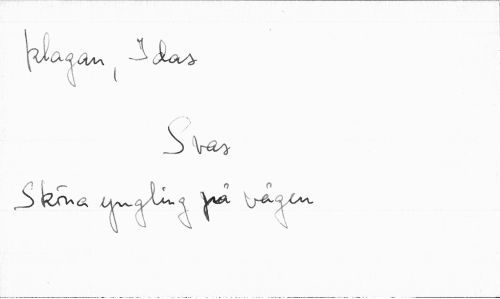 klagan, Idas
Svas
Sköna yngling på vägen